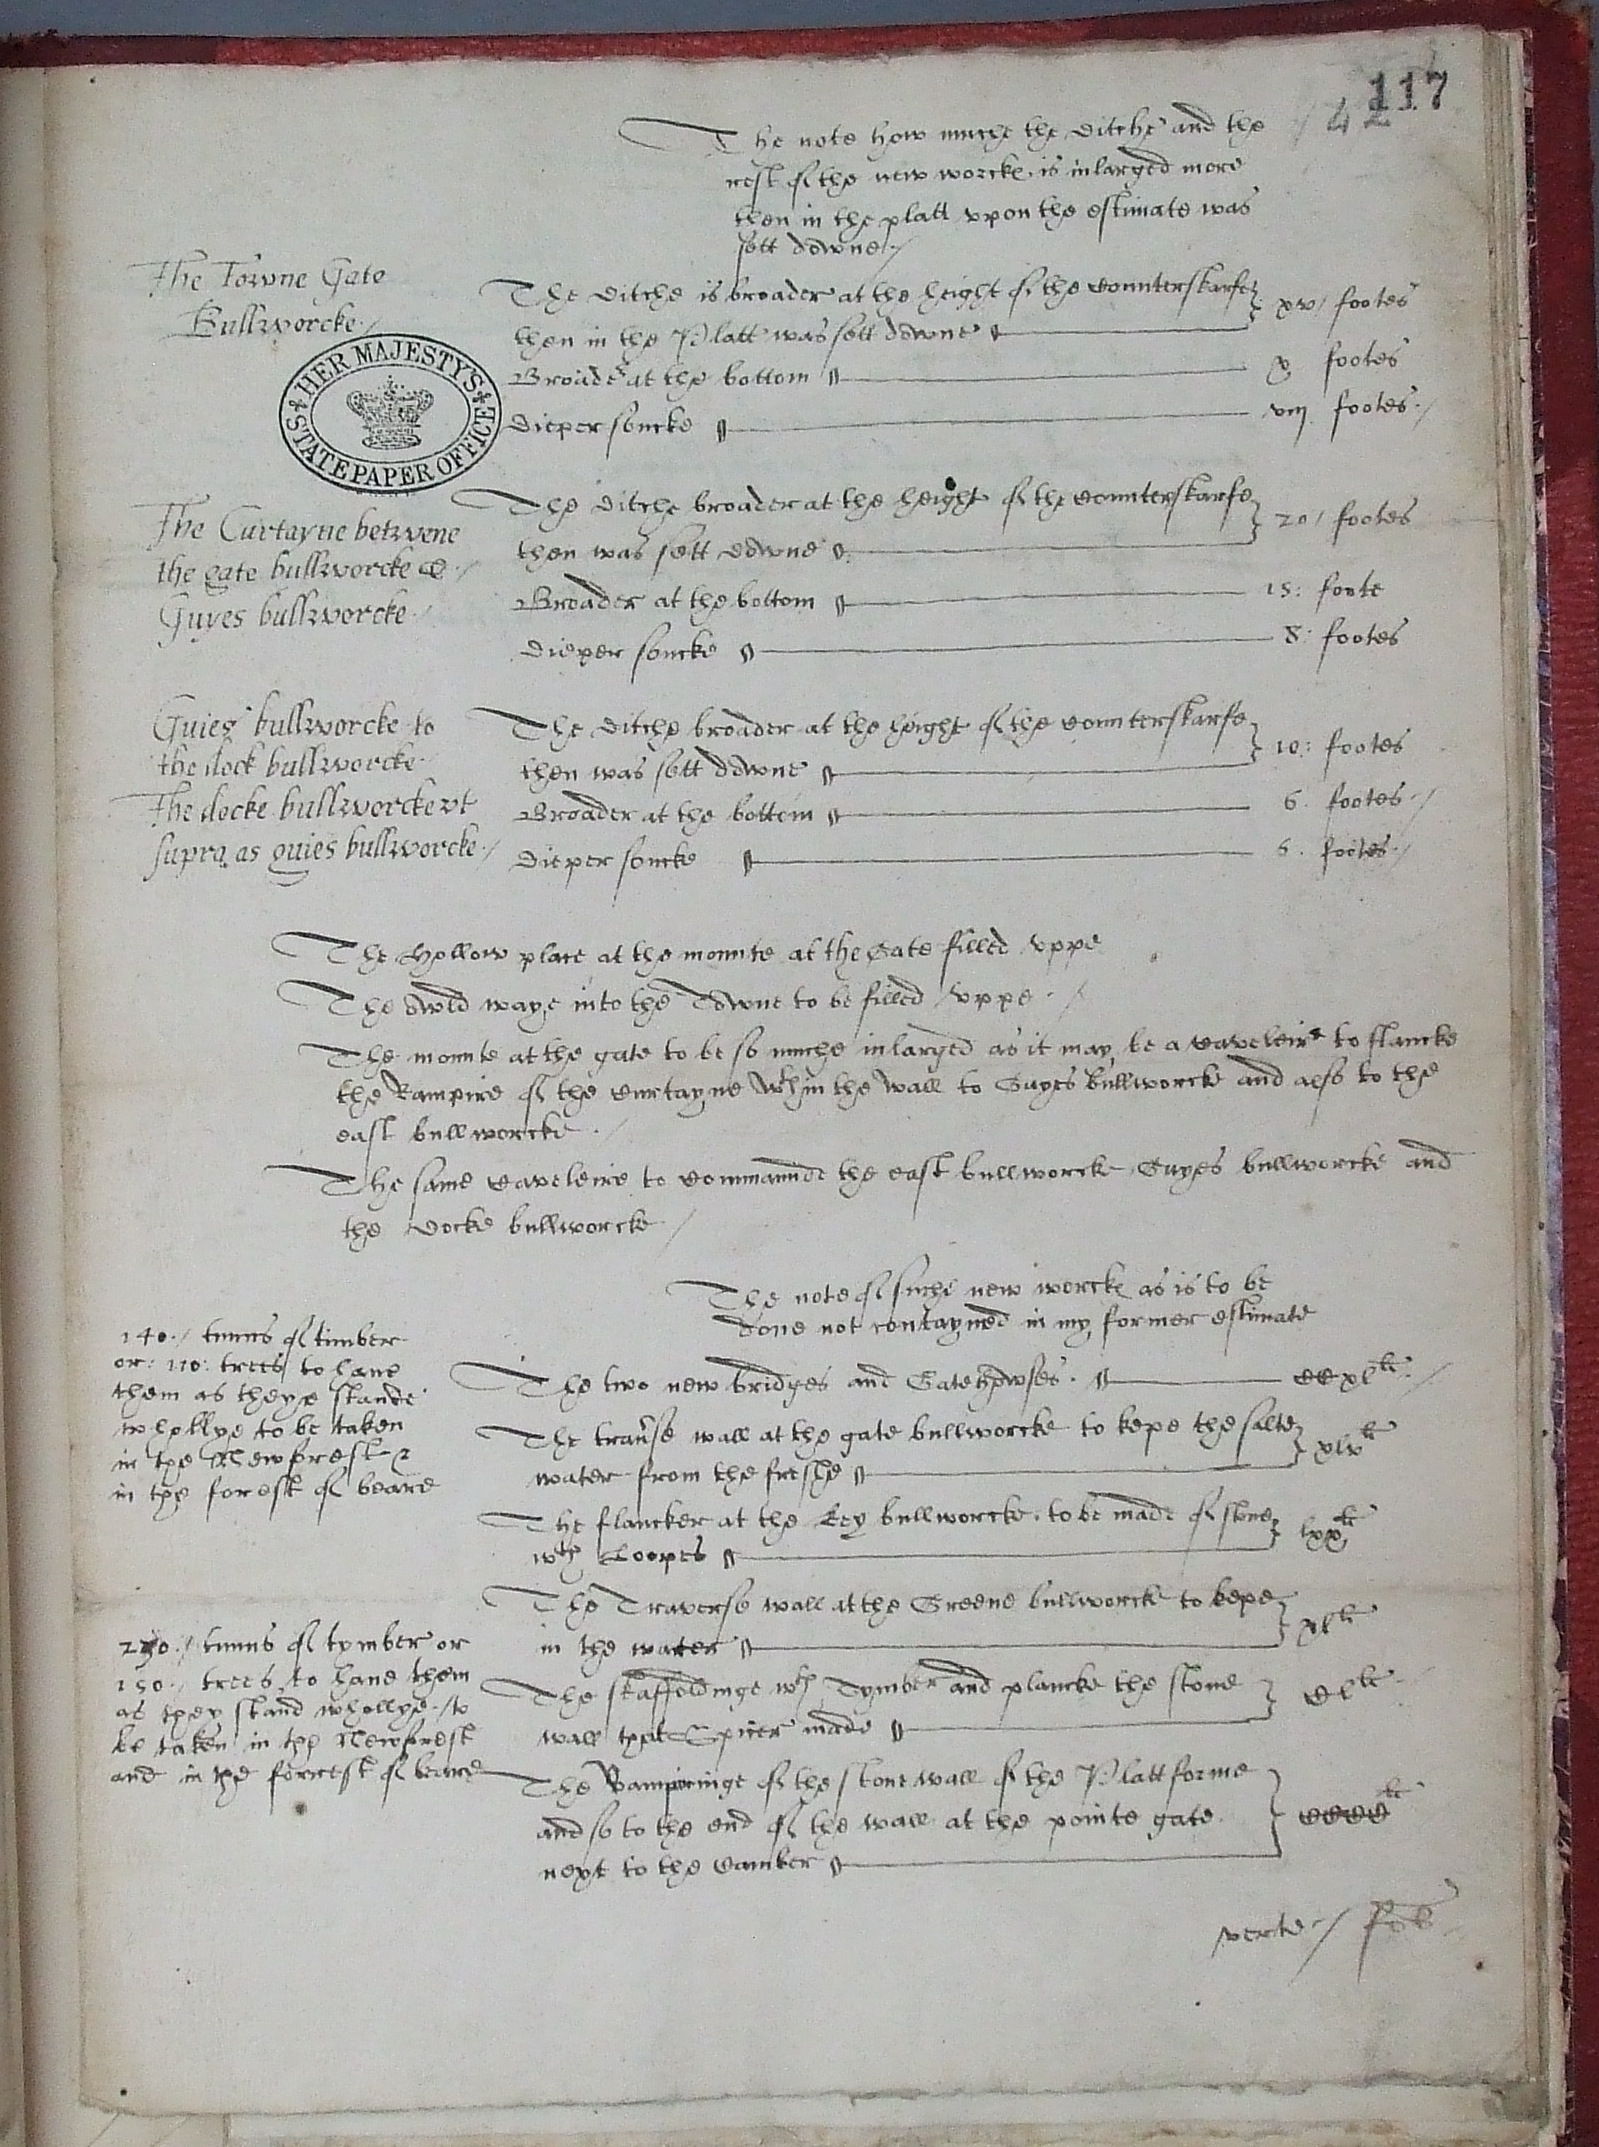 117
42
The note how muche the ditche and the
rest of the new worcke is inlarged more
then in the platt vpon the estimate was
sett downe /
The Towne Gate
Bullworcke /
The ditche is broader at the height of the counterskarfe
then in the Platt was sett downe xv / footes
Broader at the bottom x footes
Dieper soncke viij footes /
HER MAJESTY'S STATE PAPER OFFICE
The Curtayne betwene
the gate bullworcke &
Guyes bullworcke
The ditche broader at the height of the counterskarfe
then was sett downe 20 / footes
Broader at the bottom 15: foote
Dieper soncke 8: footes
Guies bullworcke to
the dock bullworcke
The docke bullworcke vt
supra as guies bullworcke /
The ditche broader at the height of the counterskarfe
then was sett downe 10: footes
Broader at the bottom 6. footes /
Dieper soncke 6. footes /
The Hollow place at the mounte at the Gate filled vppe
The owld waye into the Towne to be filled vppe /
The mounte at the gate to be so muche inlarged as it may be a caveleire to flancke
the Rampire of the curtayne wthin the wall to Guyes bullworcke and also to the
east bullworcke /
The same caveleire to commaunde the east bullworcke Guyes bullworcke and
the Docke bullworcke /
The note of suche new worcke as is to be
done not contayned in my former estimate
140 / tunns of timber
or: 110: trees to haue
them as theye stande
whollye to be taken
in the Newforest &
in the forest of beare
The two new bridges and Gatehowses CCxlli /
The trause wall at the gate bullworcke to kepe the salte
water from the freshe xlvli
The flancker at the Key bullworcke to be made of stone
wth Loopes lxxli
The Traverse wall at the Greene bullworcke to kepe
in the water xlli
/ tunns of tymber or
150 / trees to haue them
as they stand whollye to
be taken in the Newforest
and in the forrest of beare
The skaffoldinge wth Tymber and plancke the stone
wall that Spicer made CLli
The Rampiringe of the stone wall of the Plattforme
and so to the end of the wall at the pointe gate
next to the Camber CCCCli
verte /